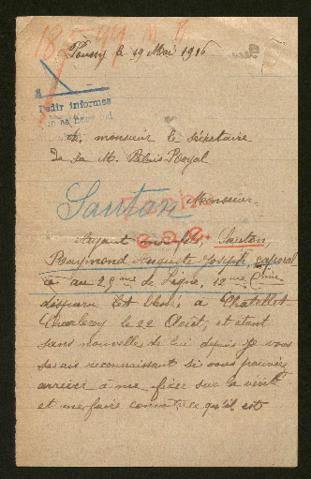 le 19 Mai 1916
Pedir informes
A, monsieur le secrétaire
De sa M. Palais Royal
Monsieur
Sauton
Ayant mon fils, Sauton,
Raymond Auguste Joseph, caporal
au 25 me de Ligne, 12 me Cnie
disparu et à Chatillet
Charleroy le 22 Août, et étant
sans nouvelles de lui depuis je vous
serais reconnaissant si vous pouviez
arriver à me fixer sur la vérité
et me faire connaître ce qu'il est